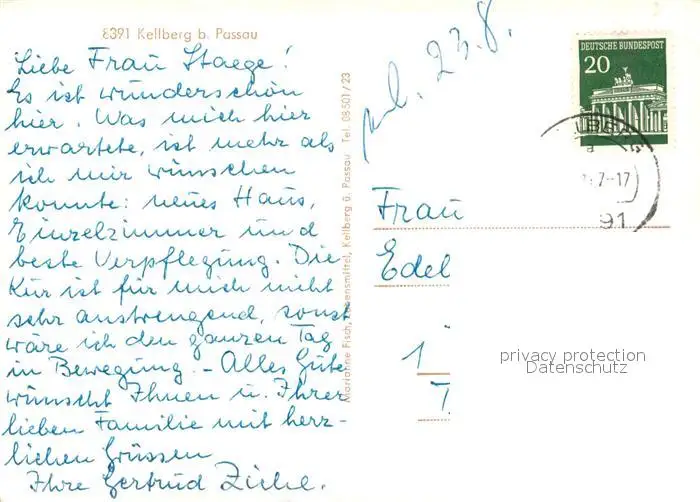 8391 Kellberg b. Passau
Liebe Frau Staege!
Es ist wunderschön
hier. Was mich hier
erwartete, ist mehr als
ich mir wünschen
konnte: neues Haus,
Einzelzimmer und
beste Verpflegung. Die
Kur ist für mich nicht
sehr anstrengend, sonst
wäre ich den ganzen Tag
in Bewegung. - Alles Gute
wünscht Ihnen u. Ihrer
lieben Familie mit herz-
lichen Grüssen
Ihre Gertrud
Marianne Fisch, Lebensmittel, Kellberg ü. Passau Tel. 08501/23
23.8.
DEUTSCHE BUNDESPOST
20
7-17
91
Frau
Edel
1
privacy protection
Datenschutz